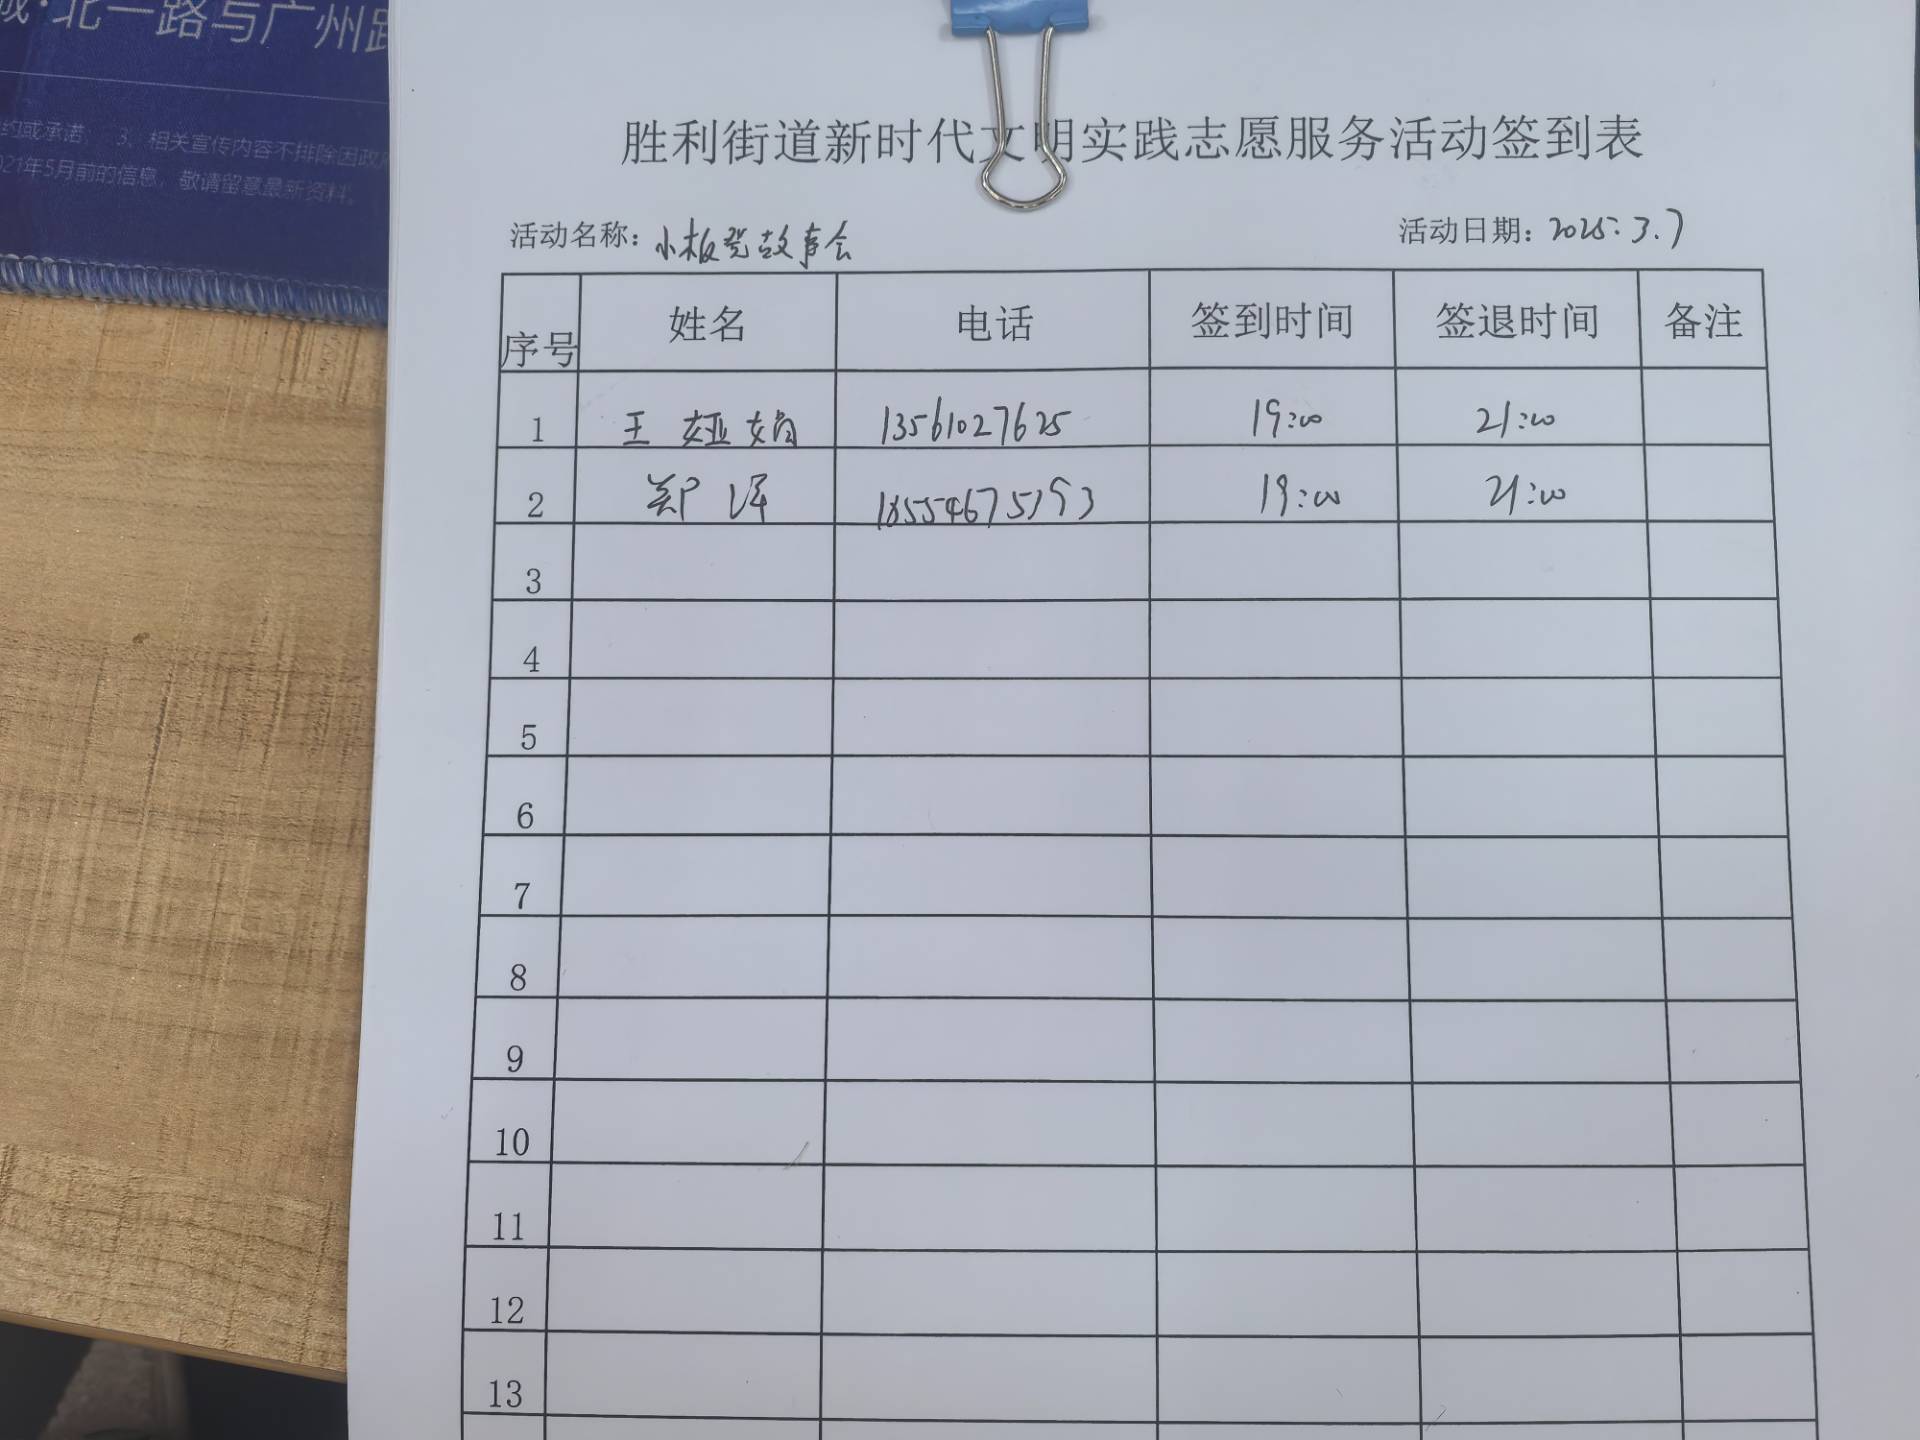 城·北一路与广州路
约或承诺； 3、相关宣传内容不排除因政府
021年5月前的信息，敬请留意最新资料。
胜利街道新时代文明实践志愿服务活动签到表
活动名称：小板凳故事会 活动日期：2025.3.7
序号 姓名 电话 签到时间 签退时间 备注
1 王娅娟 13561027625 19:00 21:00
2 郑泽 19:00 21:00
3
4
5
6
7
8
9
10
11
12
13